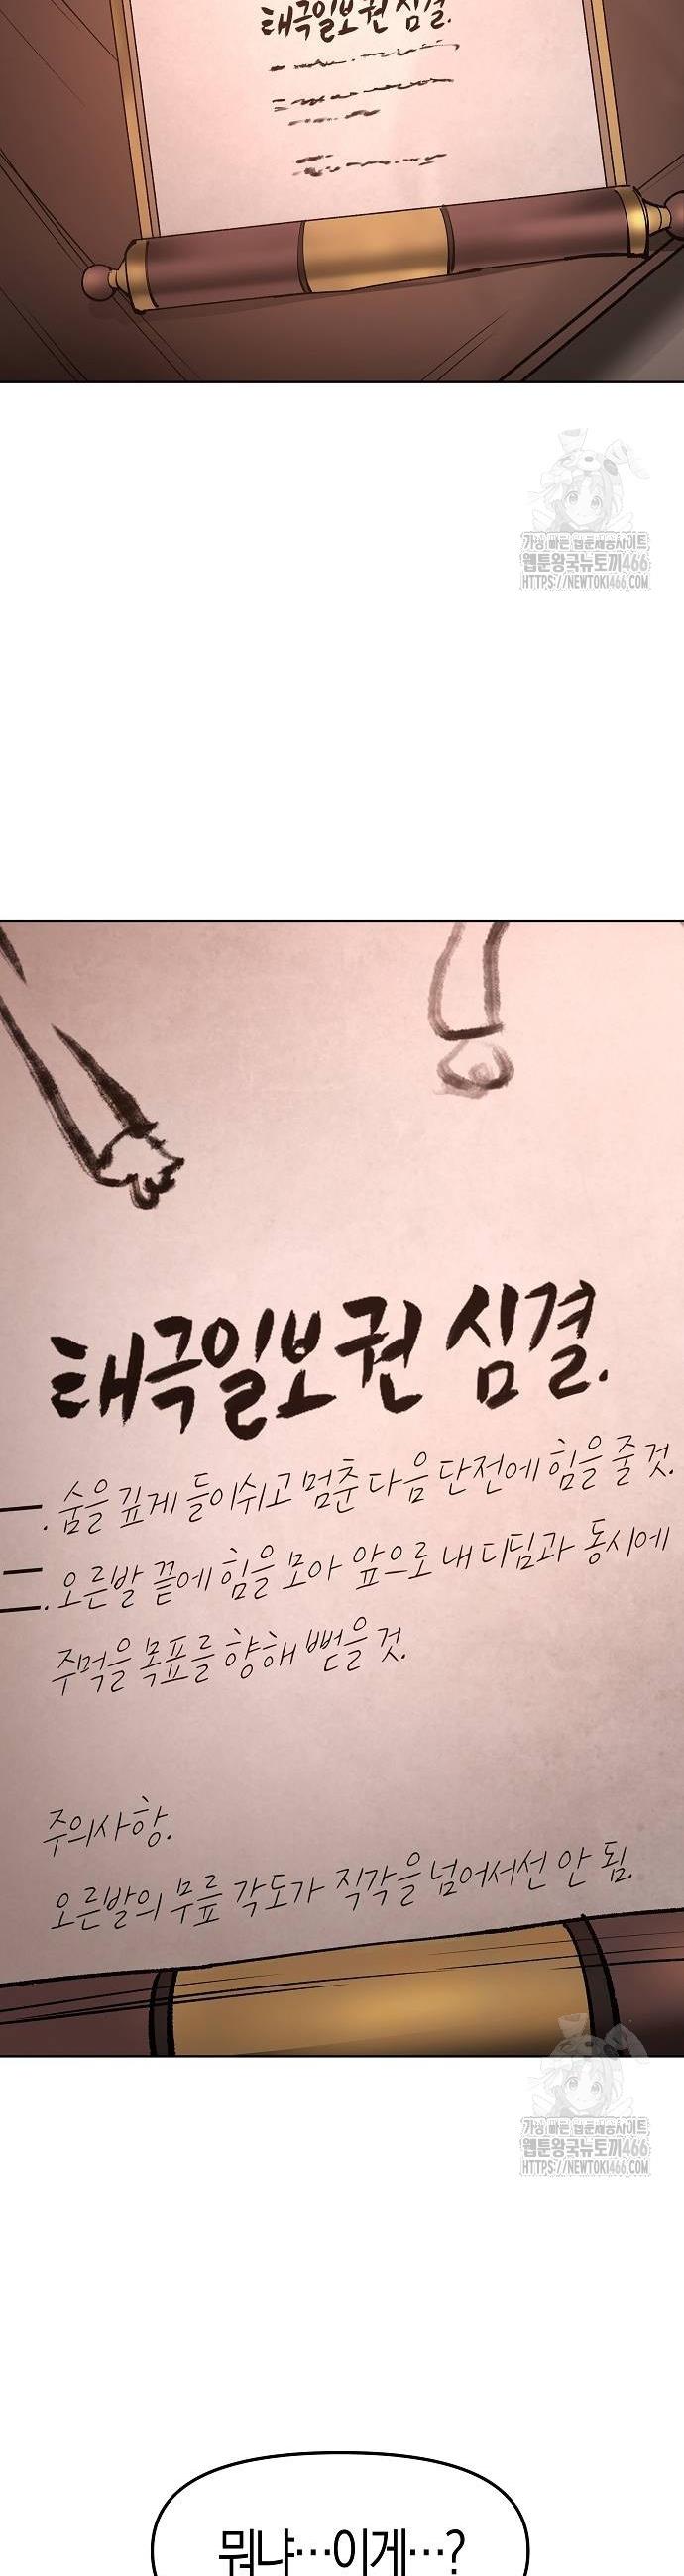 태극일보권 심결.
가장 빠른 웹툰제공사이트
웹툰왕국뉴토끼466
HTTPS://NEWTOKI466.COM
태극일보권 심결.
一. 숨을 깊게 들이쉬고 멈춘 다음 단전에 힘을 줄 것.
二. 오른발 끝에 힘을 모아 앞으로 내디딤과 동시에
주먹을 목표를 향해 뻗을 것.
주의사항.
오른발의 무릎 각도가 직각을 넘어서선 안 됨.
가장 빠른 웹툰제공사이트
웹툰왕국뉴토끼466
HTTPS://NEWTOKI466.COM
뭐냐…이게…?